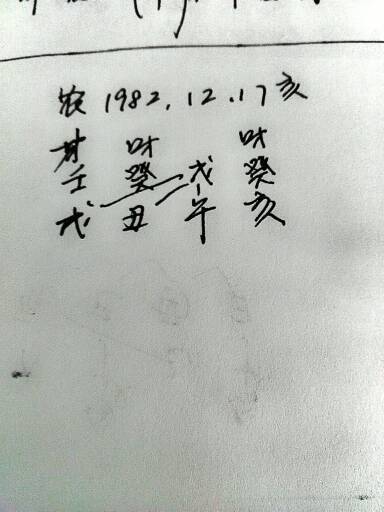 农 1982.12.17亥
才 财 财
壬 癸 戊 癸
戌 丑 午 亥